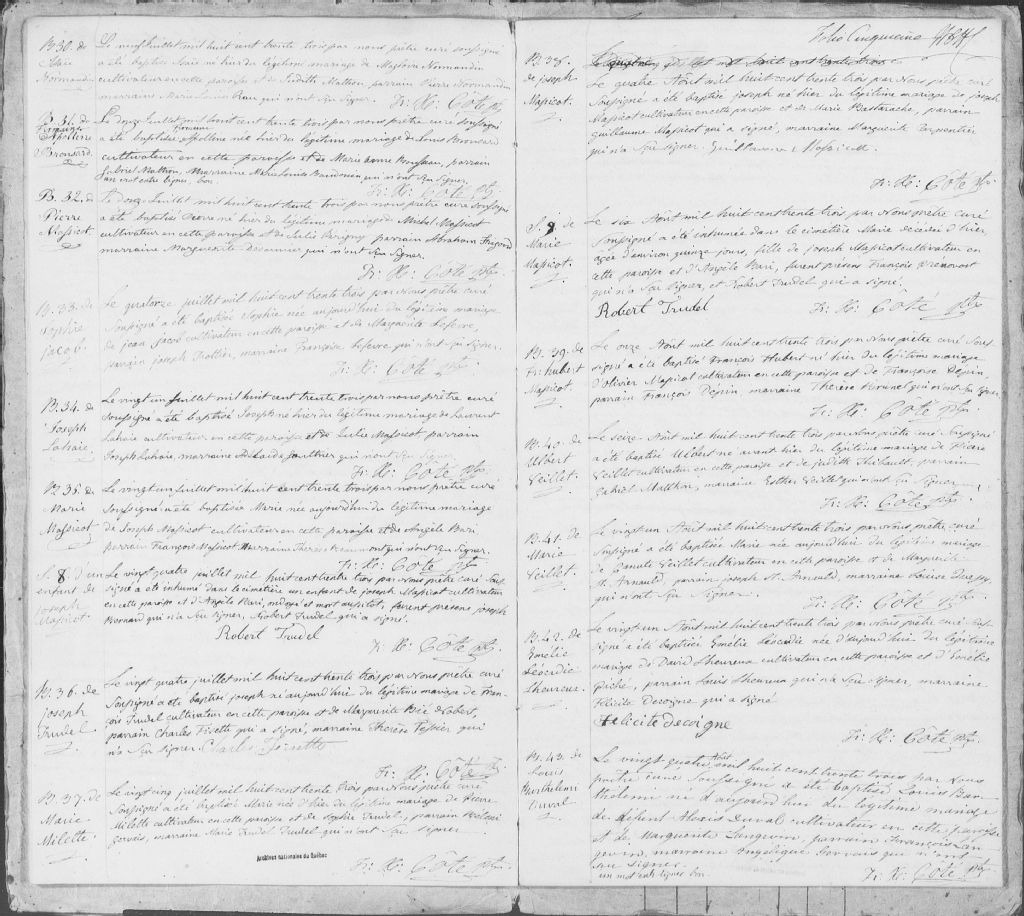 B. 30. de
Marie
Normandin
Le neuf juillet mil huit cent trente trois par nous prêtre curé soussigné
a été baptisé né hier du légitime mariage de Normandin
cultivateur en cette paroisse et de Judith Mathon, parrain Pierre Normandin
marraine Marie Louise qui n'ont su signer.
Fr: X: Côté ptr
B. 31. de
Appolline
Bronsard.
Le douze Juillet mil huit cent trente trois par nous prêtre curé soussigné
a été baptisée Appolline née hier du légitime mariage de Louis Bronsard
cultivateur en cette paroisse et de Marie Anne parrain
Gabriel Mathon, Marraine Marie Louise Baudouin qui n'ont su signer.
un mot entre lignes, bon.
Fr: X: Côté ptr
B. 32. de
Pierre
Massicot.
Le douze Juillet mil huit cent trente trois par nous prêtre curé soussigné
a été baptisé Pierre né hier du légitime mariage de Michel Massicot
cultivateur en cette paroisse et de Julie Périgny parrain Abraham
marraine Marguerite qui n'ont su signer.
Fr: X: Côté ptr
B. 33. de
Sophie
Jacob.
Le quatorze juillet mil huit cent trente trois par Nous prêtre curé
soussigné a été baptisée Sophie née aujourd'hui du légitime mariage
de Jean Jacob cultivateur en cette paroisse et de Marguerite Lefevre,
parrain joseph Trottier, marraine Françoise Lefevre qui n'ont su signer.
Fr: X: Côté ptr
B. 34. de
Joseph
Lahaie.
Le vingt un Juillet mil huit cent trente trois par nous prêtre curé
soussigné a été baptisé Joseph né hier du légitime mariage de Laurent
Lahaie cultivateur en cette paroisse et de Julie Massicot parrain
Joseph Lahaie, marraine Adelaide Gauthier qui n'ont su signer.
Fr: X: Côté ptr
B. 35. de
Marie
Massicot
Le vingt un Juillet mil huit cent trente trois par nous prêtre curé
soussigné a été baptisée Marie née aujourd'hui du légitime mariage
de Joseph Massicot cultivateur en cette paroisse et de Angèle Bari,
parrain François Massicot Marraine Therese qui n'ont su signer.
Fr: X: Côté ptr
S. 8. d'un
enfant de
Joseph
Massicot.
Le vingt quatre juillet mil huit cent trente trois par Nous prêtre curé sous-
signé a été inhumé dans le cimetière un enfant de joseph Massicot cultivateur
en cette paroisse et d'Angèle Bari, ondoyé et mort aussitôt, furent présens joseph
qui n'a su signer, Robert Trudel qui a signé.
Robert Trudel
Fr: X: Côté ptr
B. 36. de
joseph
Trudel
Le vingt quatre juillet mil huit cent trente trois par Nous prêtre curé
soussigné a été baptisé joseph né aujourd'hui du légitime mariage de Fran-
çois Trudel cultivateur en cette paroisse et de Marguerite
parrain Charles Fisette qui a signé, marraine Thérèse Tessier qui
n'a su signer. Charles
Fr: X: Côté ptr
B. 37. de
Marie
Milette.
Le vingt cinq juillet mil huit cent trente trois par Nous prêtre curé
soussigné a été baptisée Marie née d'hier du légitime mariage de Pierre
Milette cultivateur en cette paroisse et de Sophie Trudel, parrain
Gervais, marraine Marie Trudel qui n'ont su signer
Archives nationales du Québec
Fr: X: Côté ptr
Folio Cinquième
B. 38.
de joseph
Massicot.
Le quatre Août mil huit cent trente trois par Nous prêtre curé
soussigné a été baptisé joseph né hier du légitime mariage de joseph
Massicot cultivateur en cette paroisse et de Marie Bastarache, parrain
guillaume Massicot qui a signé, marraine Marguerite Carpentier
qui n'a su signer. Guillaume Massicot.
Fr: X: Côté ptr
S. 9. de
Marie
Massicot.
Le six Août mil huit cent trente trois par Nous prêtre curé
soussigné a été inhumée dans le cimetière Marie décédée d'hier,
agée d'environ quinze jours, fille de Joseph Massicot cultivateur en
cette paroisse et d'Angèle Bari, furent présens François Prénovost
qui n'a su signer, et Robert Trudel qui a signé.
Robert Trudel
Fr: X: Côté ptr
B. 39. de
Fr: hubert
Massicot.
Le onze Août mil huit cent trente trois par Nous prêtre curé sous
signé a été baptisé François Hubert né hier du légitime mariage
d'Olivier Massicot cultivateur en cette paroisse et de Françoise Pepin,
parrain François Pepin marraine Therèse Brunel qui n'ont su signer.
Fr: X: Côté ptr
B. 40. de
Olbert
Veillet.
Le seize Août mil huit cent trente trois par Nous prêtre curé soussigné
a été baptisé Olbert né avant hier du légitime mariage de Pierre
Veillet cultivateur en cette paroisse et de judith Thibault, parrain
Gabriel Matthon, marraine Esther Veillet qui n'ont su signer
Fr: X: Côté ptr
B. 41. de
Marie
Veillet.
Le vingt un Août mil huit cent trente trois par Nous prêtre curé
soussigné a été baptisée Marie née aujourd'hui du légitime mariage
de Canute Veillet cultivateur en cette paroisse et de Marguerite
St. Arnauld, parrain joseph St. Arnauld, marraine Louise
qui n'ont su signer
Fr: X: Côté ptr
B. 42. de
Emélie
Léocadie
Lheureux.
Le vingt un Août mil huit cent trente trois par Nous prêtre curé sous-
signé a été baptisée Emélie Léocadie née d'aujourd'hui du légitime
mariage de David Lheureux cultivateur en cette paroisse et d'Emélie
Piché, parrain Louis Lheureux qui n'a su signer, marraine
Felicite Decoigne qui a signé
Felicite decoigne
Fr: X: Côté ptr
B. 43. de
Louis
Barthélemi
Duval
Le vingt quatre Août mil huit cent trente trois par nous
prêtre curé soussigné a été baptisé Louis Bar-
thélemi né d'aujourd'hui du légitime mariage
de défunt Alexis Duval cultivateur en cette paroisse
et de Marguerite Langevin, parrain François Lan
gevin, marraine Angélique Gervais qui n'ont
su signer.
un mot entre lignes bon.
Fr: X: Côté ptr